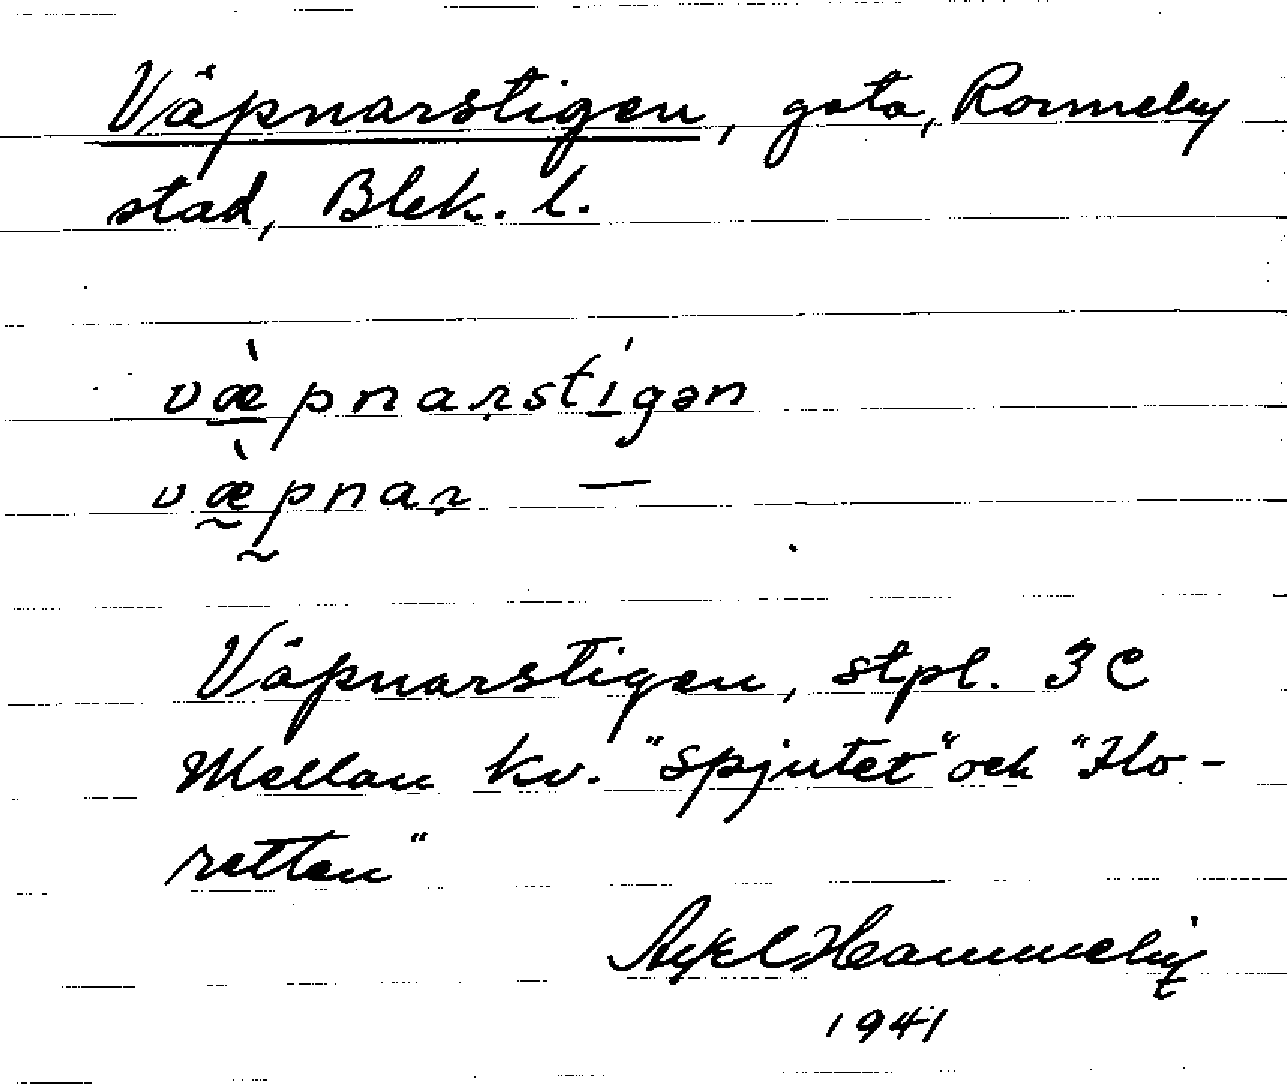 Väpnarstigen, gata, Ronneby
stad, Blek. l.
væ̀pnarstígən
væ̀pnar —
Väpnarstigen, stpl. 3 C
Mellan kv. "Spjutet" och "Flo-
retten"
Axel Hammelin
1941